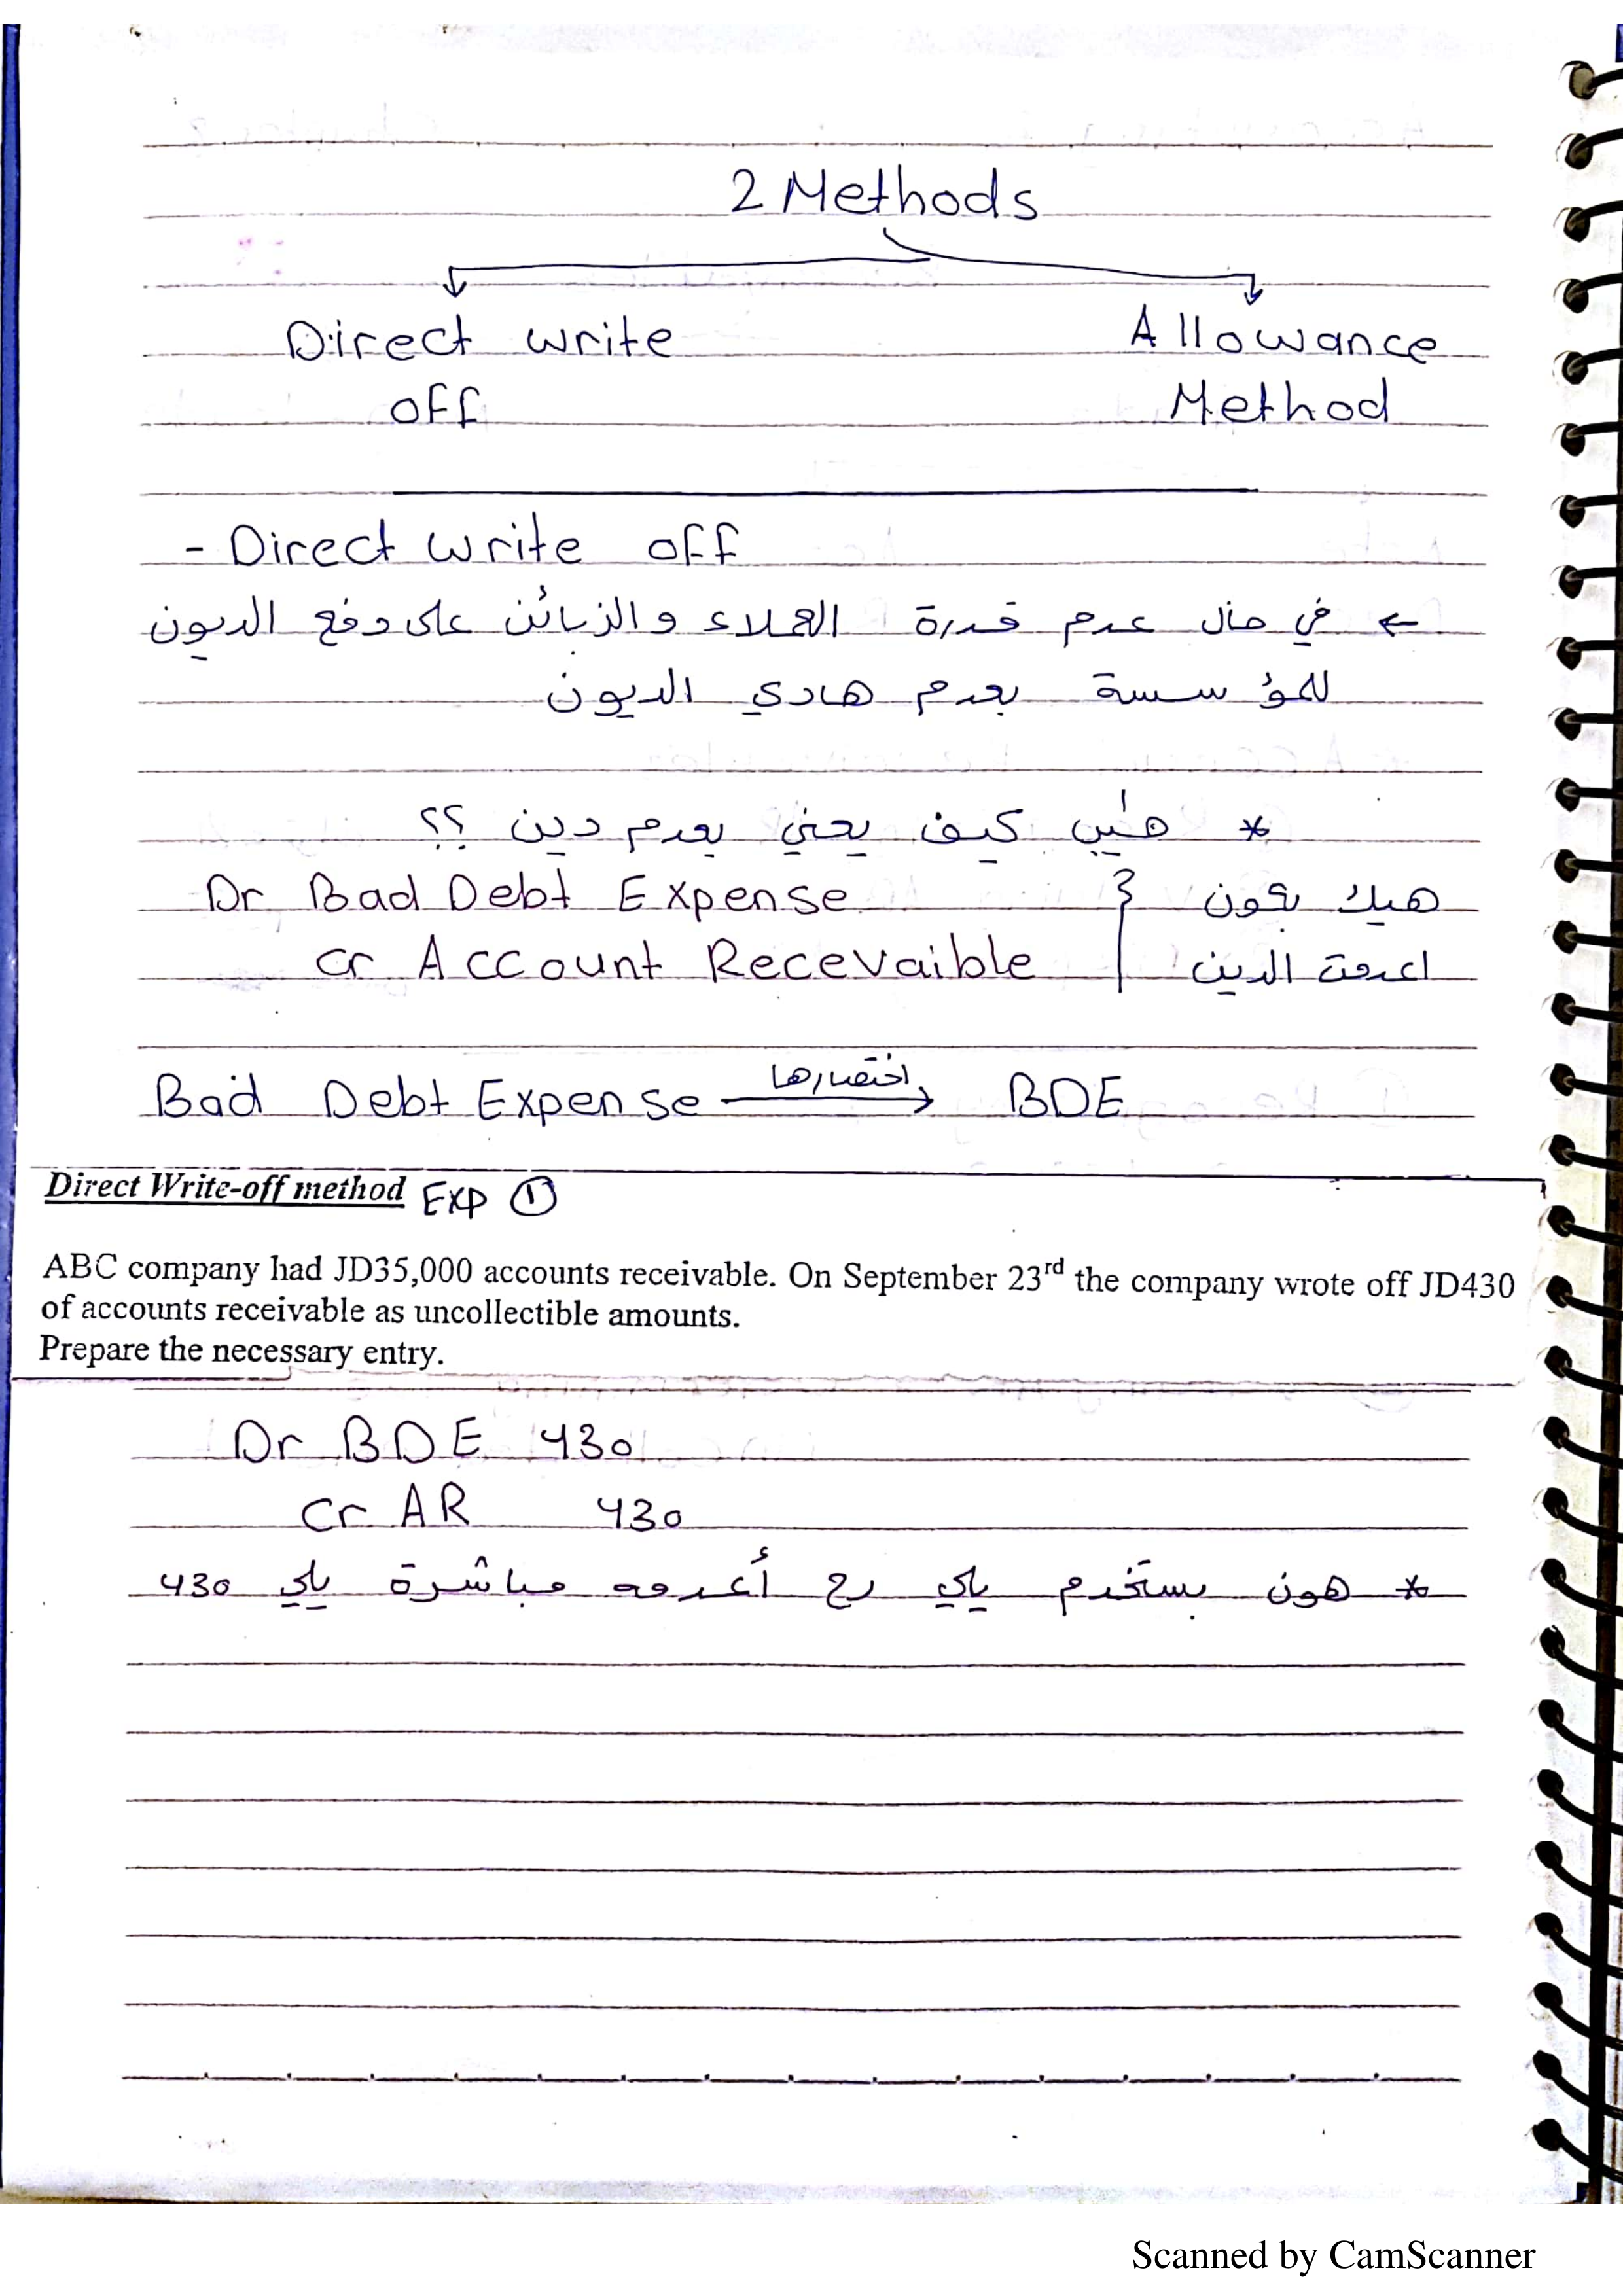 2 Methods
Direct write Allowance
off Method
- Direct write off
← في حال عدم قدرة العملاء والزبائن على دفع الديون
للمؤسسة بعدم هادي الديون
* هلأ كيف يعني بعدم دين ؟؟
Dr Bad Debt Expense هيك بكون
cr Account Recevaible اعدمت الدين
Bad Debt Expense اختصارها → BDE
Direct Write-off method EXP ①
ABC company had JD35,000 accounts receivable. On September 23rd the company wrote off JD430
of accounts receivable as uncollectible amounts.
Prepare the necessary entry.
Dr BDE 430
Cr AR 430
* هون بستخدم يلي رح أعدمه مباشرة يلي 430
Scanned by CamScanner